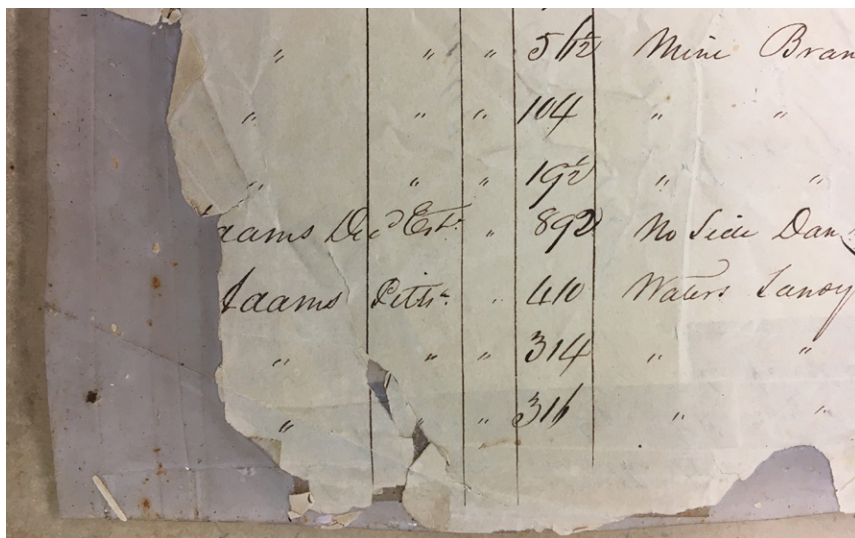 " " " 51½ Mine Bran
" " " 104 " "
" " " 19½ " "
dams Decd Est. " 892 No Side Dan
Adams " 410 Waters
" " " 314 " "
" " " 316 " "